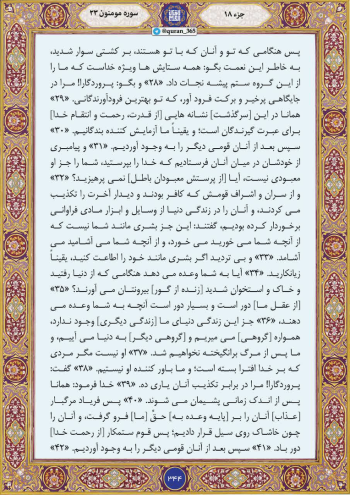 جزء ۱۸
سوره مومنون ۲۳
@quran_365
پس هنگامی که تو و آنان که با تو هستند، بر کشتی سوار شدید،
به خاطر این نعمت بگو: همه ستایش ها ویژه خداست که ما را
از این گروه ستم پیشه نجات داد. «۲۸» و بگو: پروردگارا! مرا در
جایگاهی پرخیر و برکت فرود آور، که تو بهترین فرودآورندگانی. «۲۹»
همانا در این [سرگذشت] نشانه هایی [از قدرت، رحمت و انتقام خدا]
برای عبرت گیرندگان است؛ و یقیناً ما آزمایش کننده بندگانیم. «۳۰»
سپس بعد از آنان قومی دیگر را به وجود آوردیم. «۳۱» و پیامبری
از خودشان در میان آنان فرستادیم که خدا را بپرستید، شما را جز او
معبودی نیست، آیا [از پرستش معبودان باطل] نمی پرهیزید؟ «۳۲»
و از سران و اشراف قومش که کافر بودند و دیدار آخرت را تکذیب
می کردند، و آنان را در زندگی دنیا از وسایل و ابزار مادی فراوانی
برخوردار کرده بودیم، گفتند: این جز بشری مانند شما نیست که
از آنچه شما می خورید می خورد، و از آنچه شما می آشامید می
آشامد. «۳۳» و بی تردید اگر بشری مانند خود را اطاعت کنید، یقیناً
زیانکارید. «۳۴» آیا به شما وعده می دهد هنگامی که از دنیا رفتید
و خاک و استخوان شدید [زنده از گور] بیرونتان می آورند؟ «۳۵»
[از عقل ما] دور است و بسیار دور است آنچه به شما وعده می
دهند، «۳۶» جز این زندگی دنیای ما [زندگی دیگری] وجود ندارد،
همواره [گروهی] می میریم و [گروهی دیگر] به دنیا می آییم، و
ما پس از مرگ برانگیخته نخواهیم شد. «۳۷» او نیست مگر مردی
که بر خدا افترا بسته است؛ و ما باور کننده او نیستیم. «۳۸» گفت:
پروردگارا! مرا در برابر تکذیب آنان یاری ده. «۳۹» خدا فرمود: همانا
پس از اندک زمانی پشیمان می شوند. «۴۰» پس فریاد مرگبار
[عذاب] آنان را بر [پایه وعده به] حق [ما] فرو گرفت، و آنان را
چون خاشاک روی سیل قرار دادیم؛ پس قوم ستمکار [از رحمت خدا]
دور باد. «۴۱» سپس بعد از آنان قومی دیگر را به وجود آوردیم. «۴۲»
۳۴۴